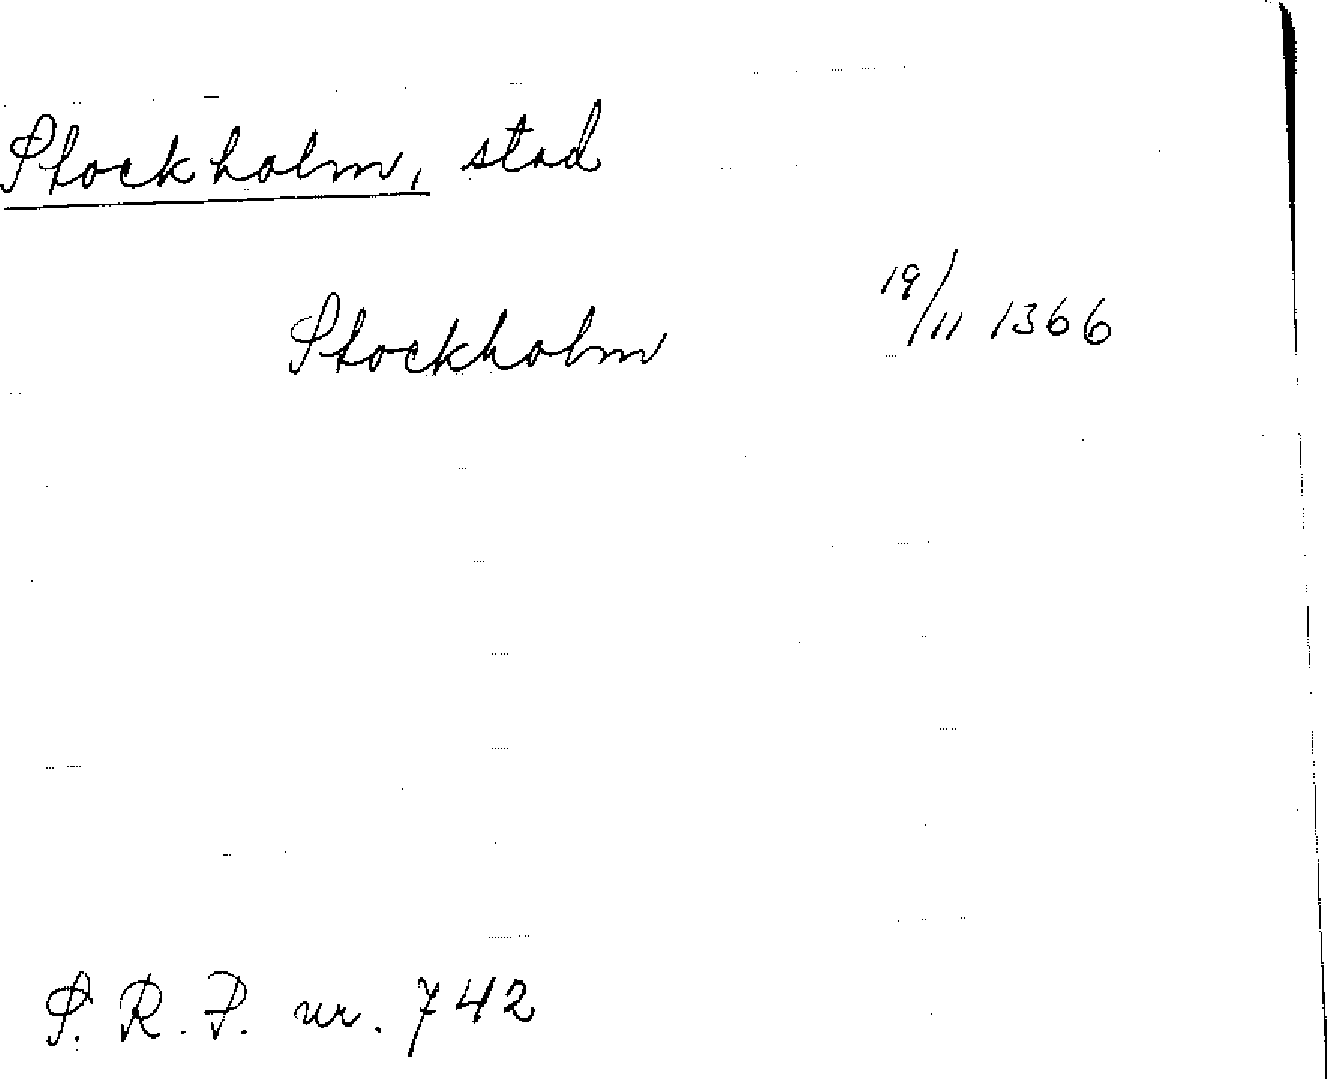 Stockholm, stad
Stockholm 19/11 1366
S. R. P. nr. 742